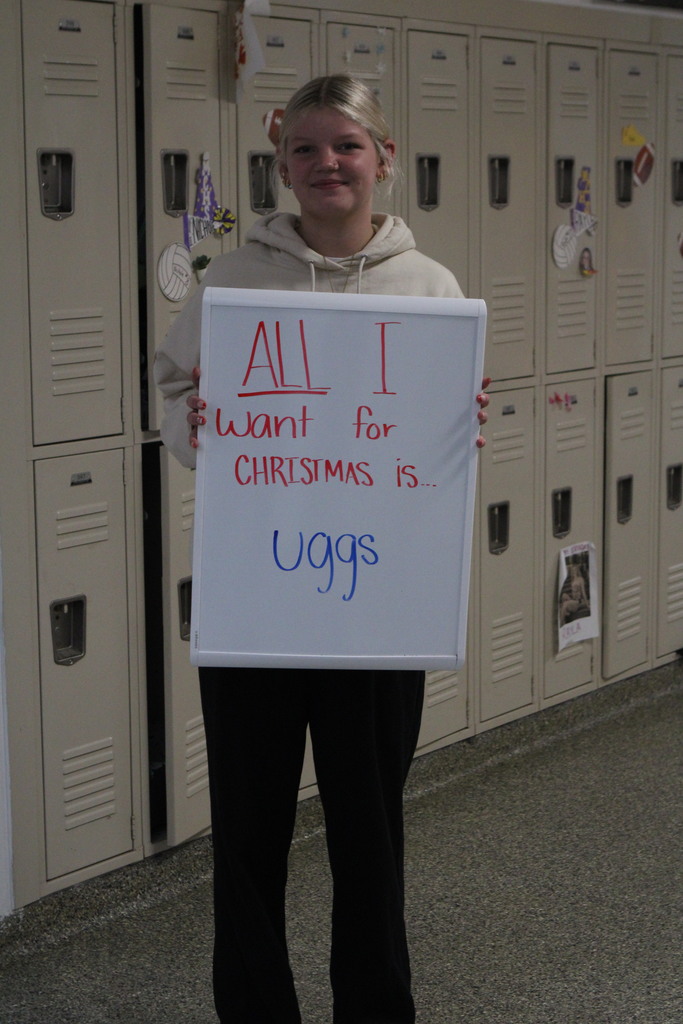 ALL I
want for
CHRISTMAS is...
uggs